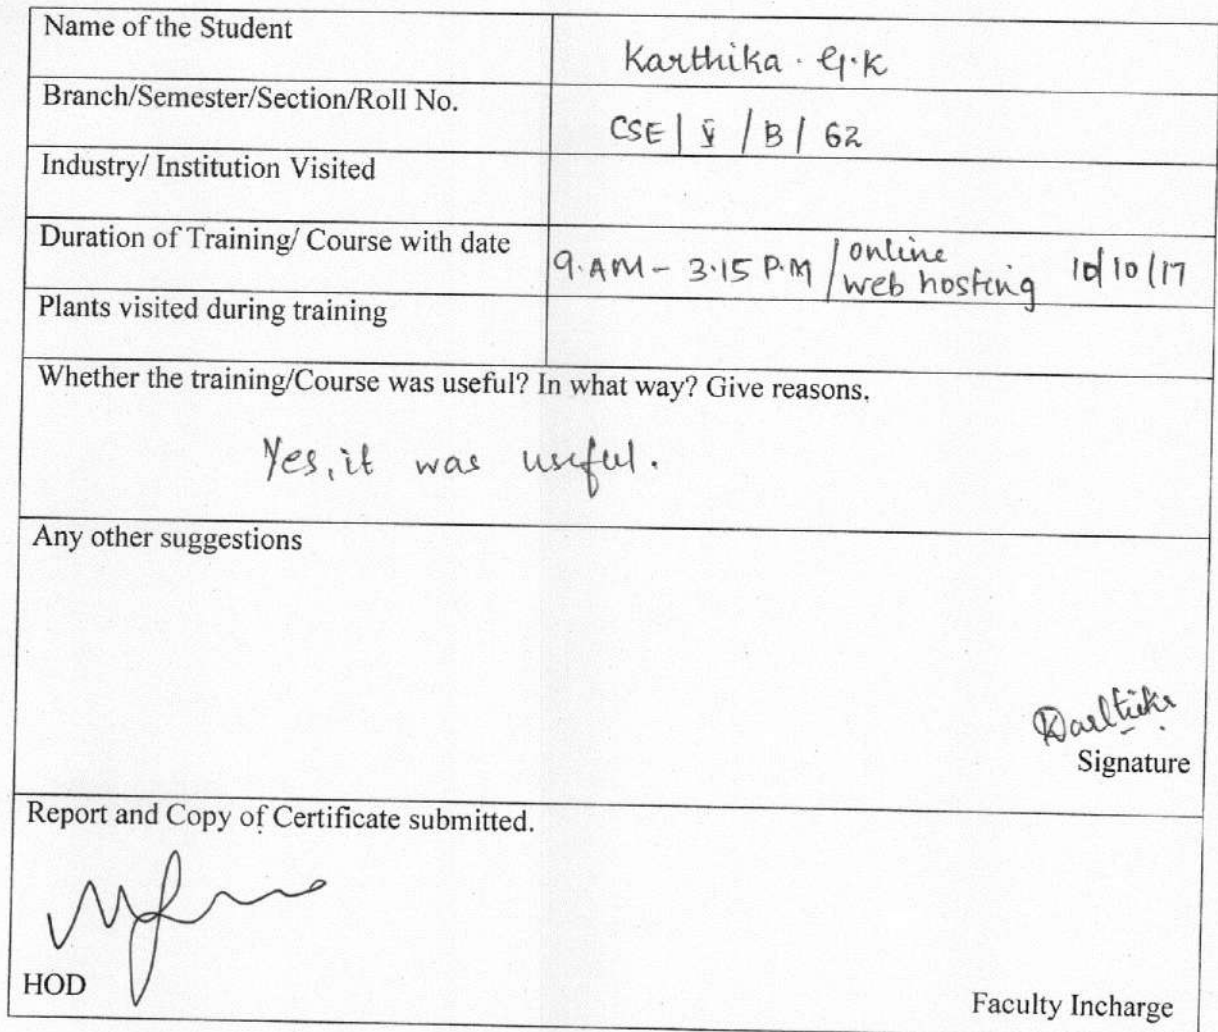 Name of the Student
Karthika . G.K
Branch/Semester/Section/Roll No.
CSE | V / B / 62
Industry/ Institution Visited
Duration of Training/ Course with date
9.AM - 3.15 P.M / online
web hosting 10/10/17
Plants visited during training
Whether the training/Course was useful? In what way? Give reasons.
Yes, it was useful.
Any other suggestions
Karthika
Signature
Report and Copy of Certificate submitted.
HOD
Faculty Incharge